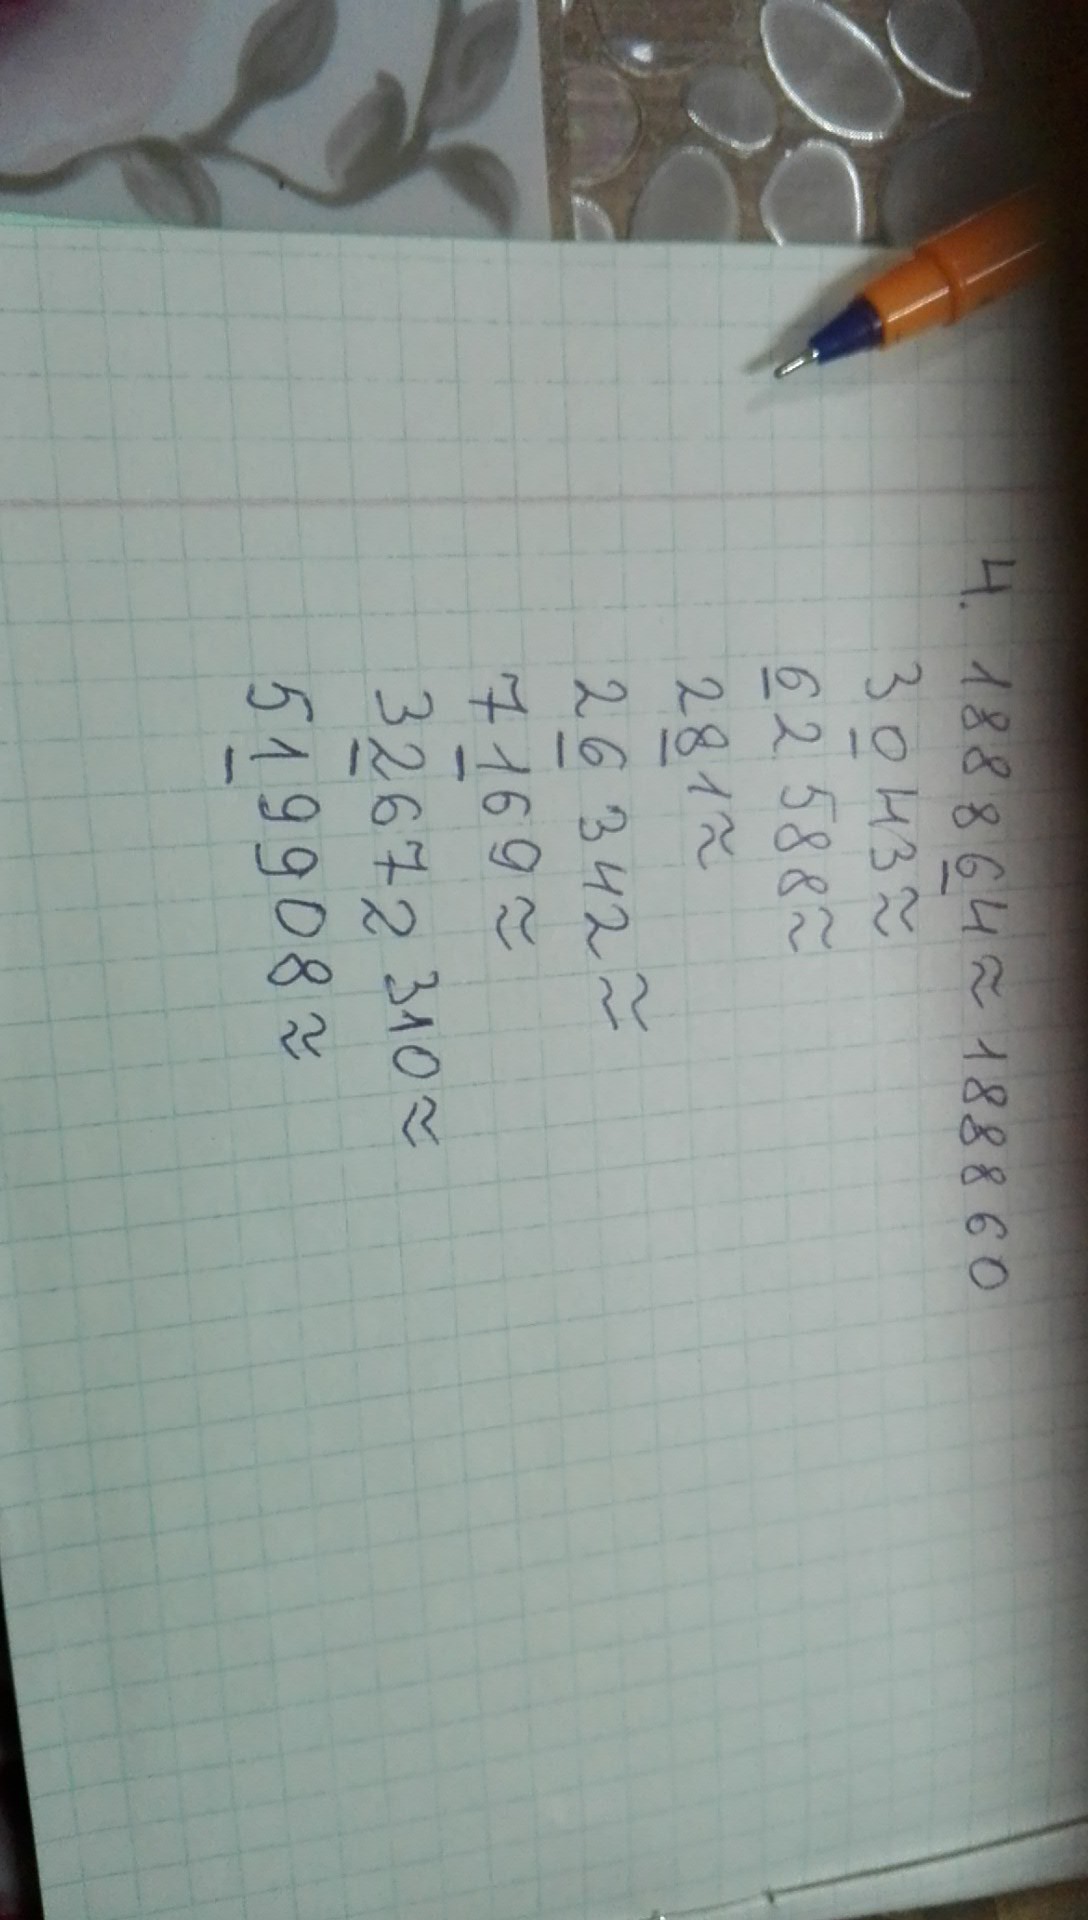 4. 188864≈188860
3043≈
62588≈
281≈
26342≈
7169≈
32672310≈
519908≈